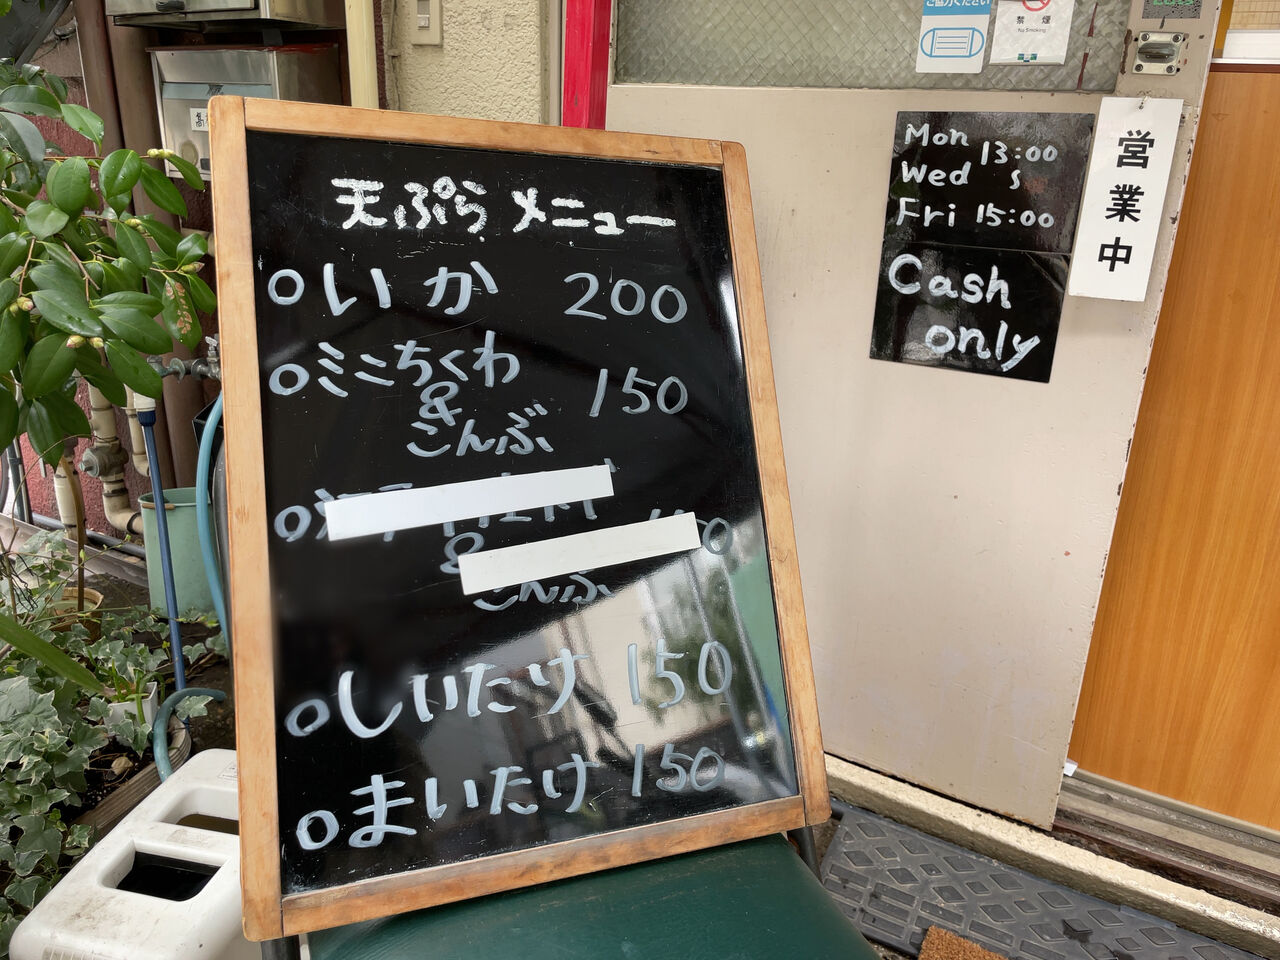 天ぷら メニュー
○いか 200
○ミニちくわ 150
&
こんぶ
○
&
こんぶ
○しいたけ 150
○まいたけ 150
ご協力ください
禁煙
No Smoking
Mon 13:00
Wed 〜
Fri 15:00
Cash
only
営業中